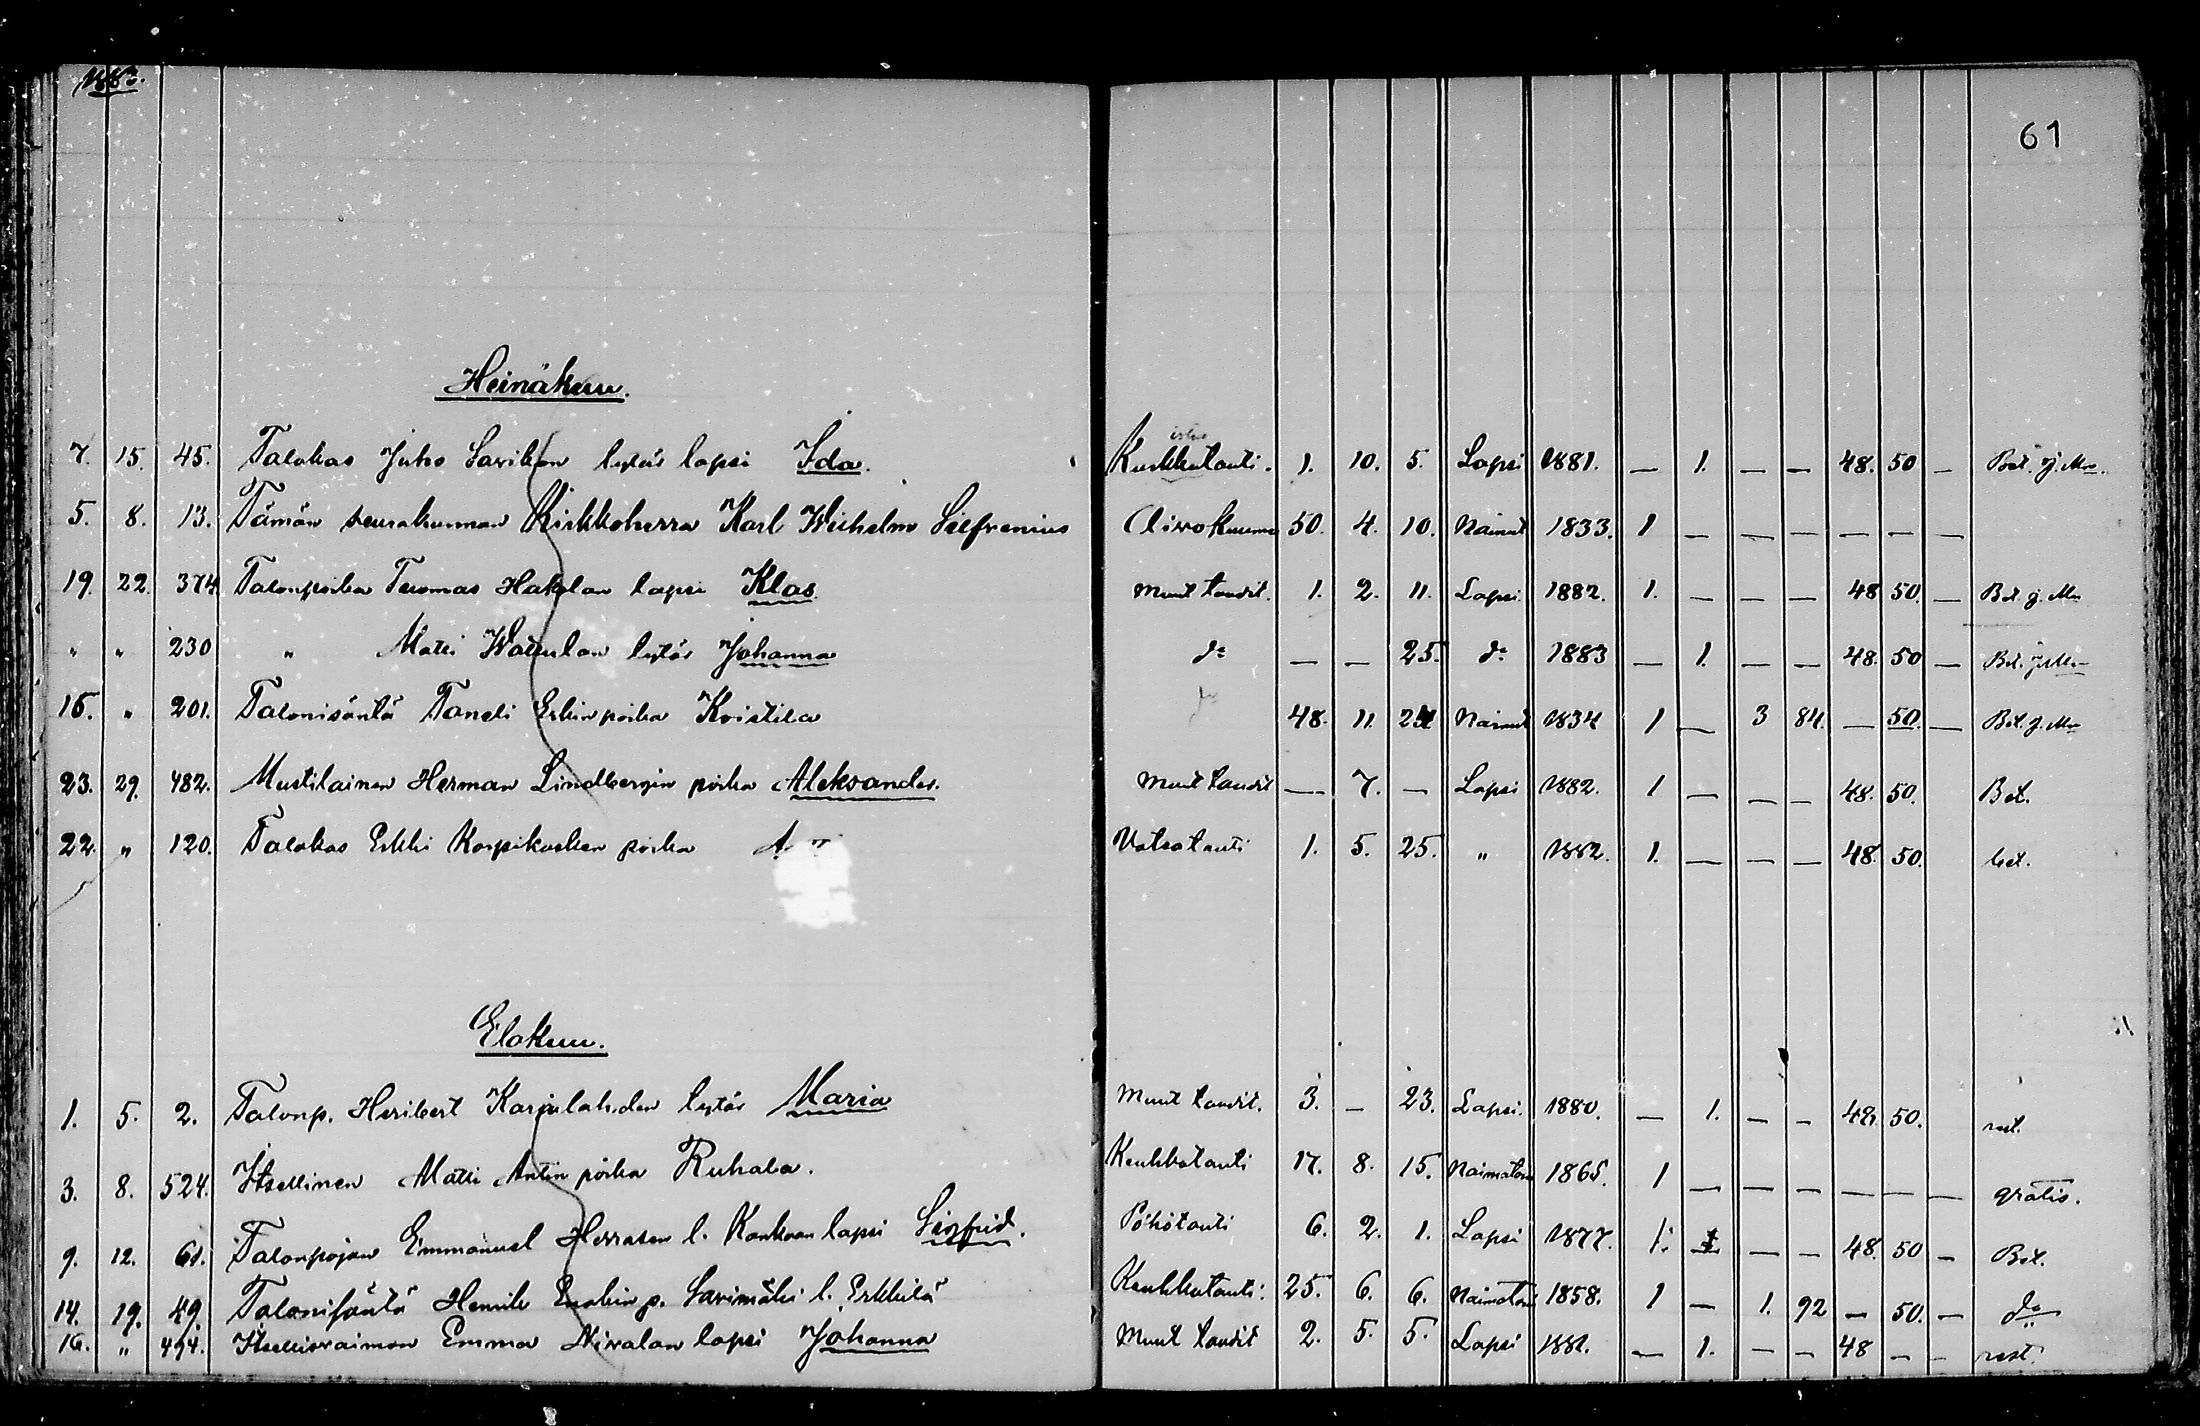 1883.
61
Heinäkuu.
7. 15. 45. Talokas Juho Savikon tytär lapsi Ida. Keuhkotauti. 1. 10. 5. Lapsi 1881. — 1. — — 48. 50 — Bet. j. Mn.
5. 8. 13. Tämän seurakunnan Kirkkoherra Karl Wilhelm Siefvenius Aivokuume 50. 4. 10. Nainut 1833. 1 — — — — — —
19. 22. 374 Talonpoika Tuomas Hakalan lapsi Klas. Muut taudit. 1. 2. 11. Lapsi 1882. 1. — — — 48 50. — Bet. j. Mn
" " 230 " Matti Wattulan tytär Johanna do — — 25. do 1883 — 1. — — 48. 50 — Bet. j. Mn
16. " 201. Talonisäntä Taneli Erkinpoika Koistila do 48. 11. 24 Nainut 1834 1 — 3 84. — 50. — Bet. j. Mn
23. 29. 482. Mustilainen Herman Lindbergin poika Aleksander. Muut taudit — 7. — Lapsi 1882. 1 — — — 48. 50. Bet.
22. " 120. Talokas Erkki Korpikosken poika Vatsatauti 1. 5. 25. " 1882. 1. — — — 48. 50. bet.
Elokuu.
1. 5. 2. Talonp. Heribert Karjulahden tytär Maria Muut taudit. 3. — 23. Lapsi. 1880. — 1. — — 48. 50. rest.
3. 8. 524. Itsellinen Matti Antin poika Ruhala. Keuhkotauti 17. 8. 15. Naimaton 1865. 1 — — — — — — gratis.
9. 12. 61. Talonpojan Emmanuel Herrasen l. Kankaan lapsi Sigfrid. Pöhötauti 6. 2. 1. Lapsi 1877. 1. — — 48. 50 — Bet.
14. 19. 49. Talonisäntä Henrik Enokin p. Savimäki l. Erkkilä Keuhkotauti. 25. 6. 6. Naimaton 1858. 1 — 1. 92 — 50. — do
16. " 494. Itsellisvaimon Emma Niwalan lapsi Johanna Muut taudit 2. 5. 5. Lapsi 1881. — 1. — — 48 — — rest.